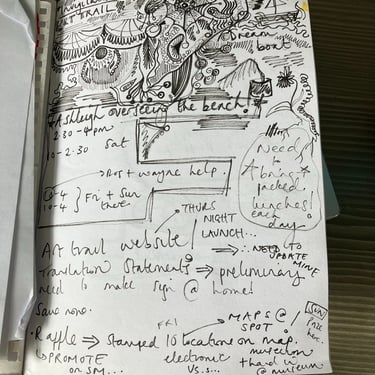 ART TRAIL
Dream
boat
Ashleigh overseeing the bench!
2.30-4pm
Sat
12-2.30
Ros + Wayne help.
10-4
10-4 } Fri + Sun
there
Need
to
bring
packed
lunches!
each
day
THURS
NIGHT
LAUNCH...
Art trail website!
∴ NEED to
UPDATE
MINE
Translation Statements ⇒ preliminary
need to make sign @ home!
Save none.
FRI
MAPS @
SPOT!
SUN
Raffle ⇒ stamped 10 locations on map.
↳ PROMOTE
on SM...
electronic
vs...
+ hand in
@ museum